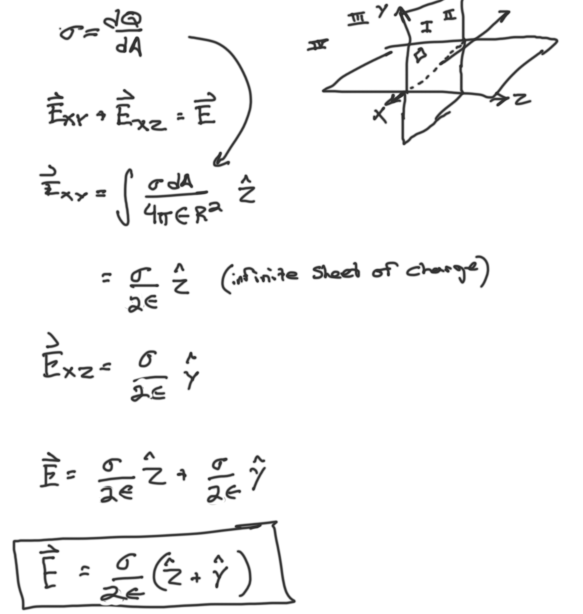 σ = dQ/dA
III Y I II
IV
X Z
E⃗xy + E⃗xz = E⃗
E⃗xy = ∫ σ dA / 4π∈R² ẑ
= σ/2∈ ẑ (infinite sheet of charge)
E⃗xz = σ/2∈ ŷ
E⃗ = σ/2∈ ẑ + σ/2∈ ŷ
E⃗ = σ/2∈ (ẑ + ŷ)